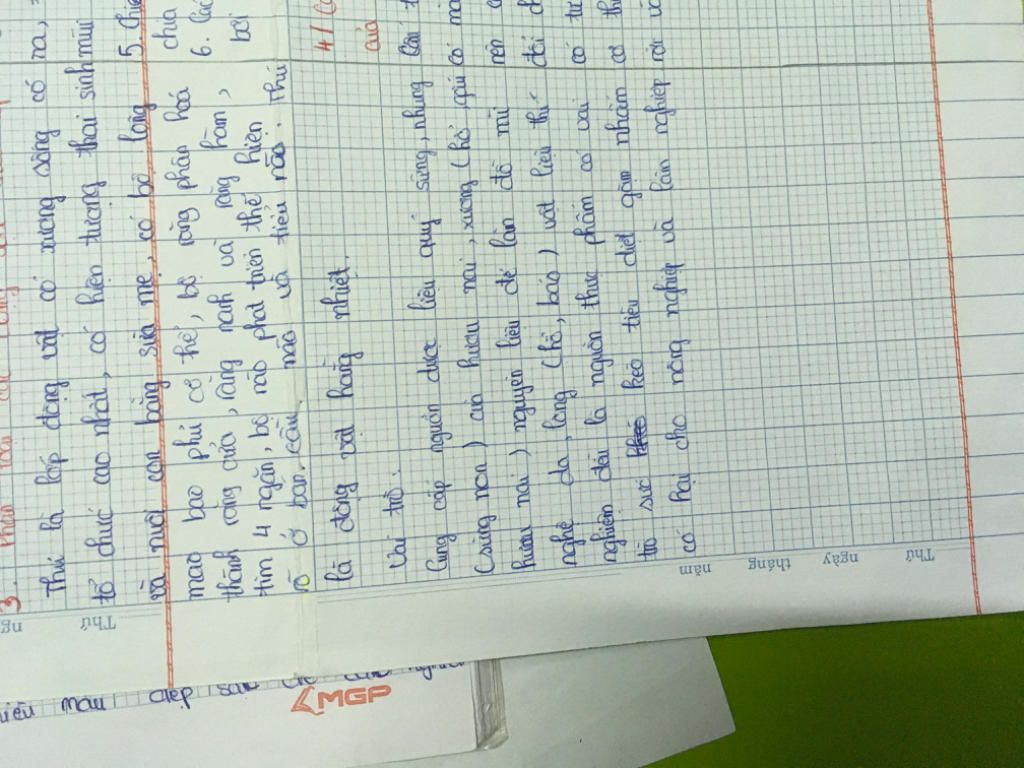 3.
Thú là lớp động vật có xương sống có
tổ chức cao nhất, có hiện tượng thai sinh
và nuôi con bằng sữa mẹ, có bộ lông
mao bao phủ cơ thể, bộ răng phân hoá
thành răng cửa, răng nanh và răng hàm,
tim 4 ngăn, bộ não phát triển thể hiện
rõ ở bán cầu não và tiểu não. Thú
là động vật hằng nhiệt.
Vai trò:
Cung cấp nguồn dược liệu quý sừng, nhung
(sừng non) của hươu nai, xương (hổ, gấu
hươu nai) nguyên liệu để làm đồ mĩ
nghệ da, lông (hổ, báo) vật liệu thí
nghiệm đài là nguồn thực phẩm có vai
trò sức kéo tiêu diệt gặm nhấm
có hại cho nông nghiệp và lâm nghiệp
ra,
mũi
5.
chia
6.
bởi
4/
của
có
nên
đối
có
cơ
rơi
Thứ
Thứ ngày tháng năm
màu đẹp
MGP